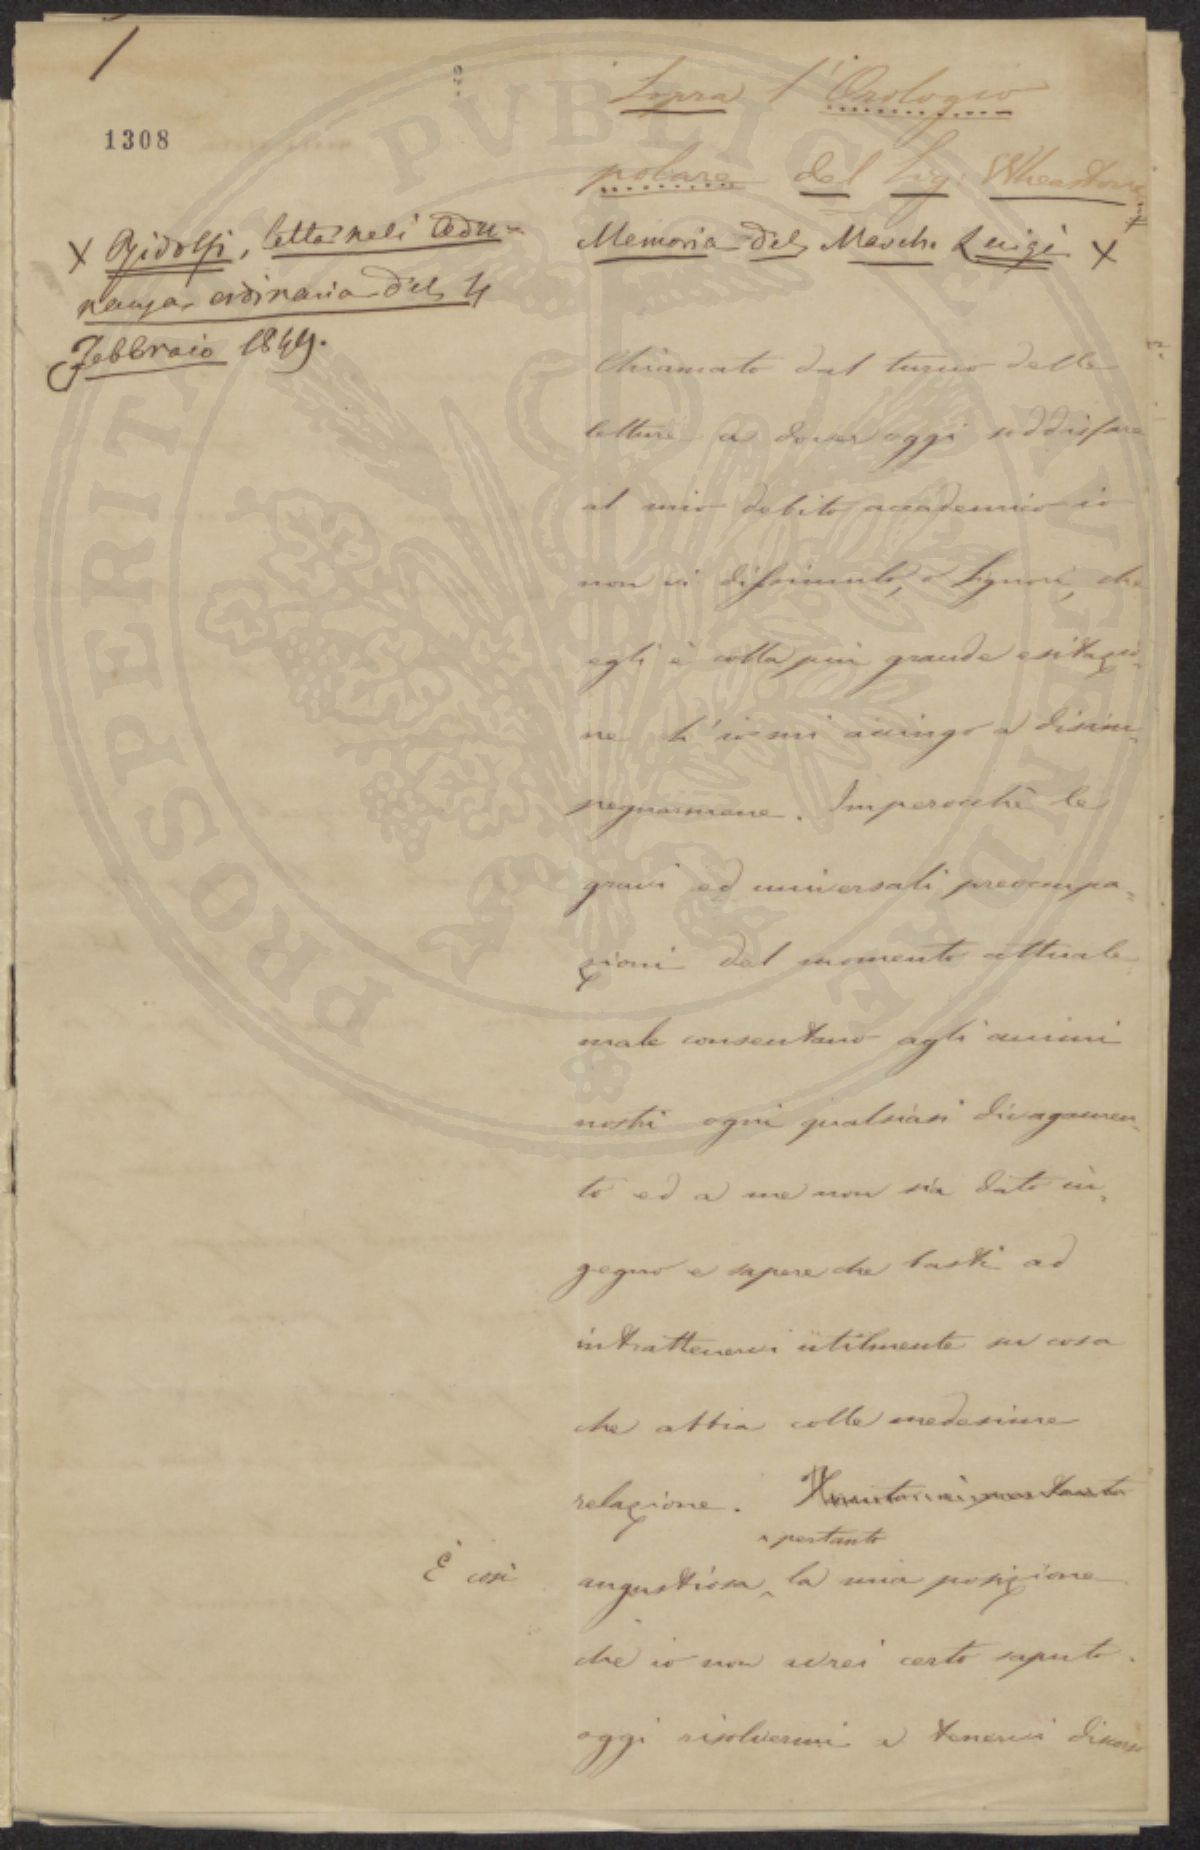 1
1308
Sopra l'Orologio
polare del Sig. Wheastone
Memoria del March. Luigi X
X Ridolfi, letta nell'Adu-
nanza ordinaria del 4
Febbraio 1849.
Chiamato dal turno delle
letture a dover oggi soddisfare
al mio debito accademico io
non vi dissimulo, o Signori, che
egli è colla più grande esitazio-
ne ch'io mi accingo a disim-
pegnarmene. Imperocchè le
gravi ed universali preoccupa-
zioni del momento attuale
male consentano agli animi
nostri ogni qualsiasi divagamen-
to ed a me non sia dato in-
gegno e sapere che basti ad
intrattenervi utilmente su cosa
che abbia colle medesime
relazione.
pertanto
È così
angustiosa la mia posizione
che io non avrei certo saputo
oggi risolvermi a tenervi discorso
PROSPERITATI PVBLICAE AVGENDAE